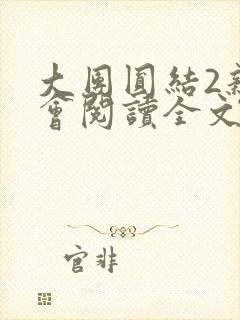 大團圓結2新
會閱讀全文
官非